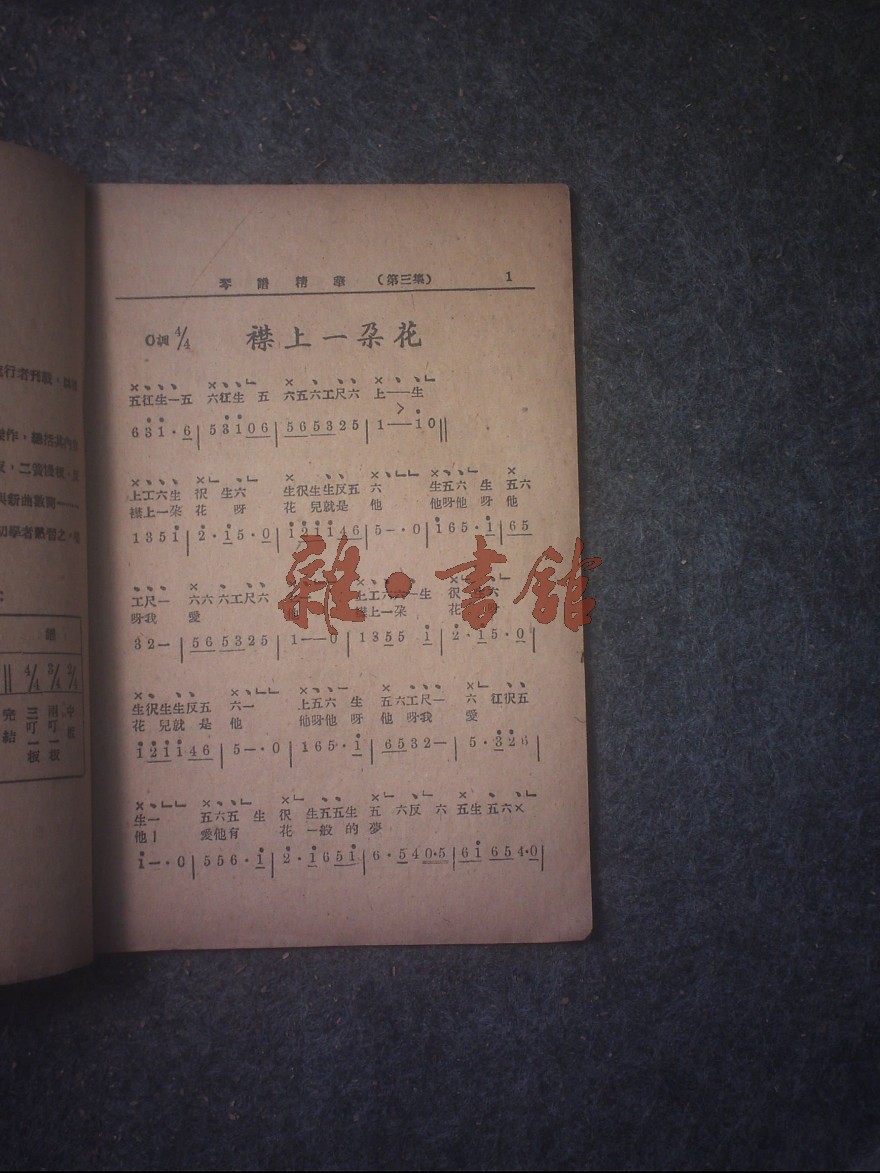 琴譜精華 (第三集) 1
C調 4/4 襟上一朵花
五仜生一五 六仜生 五 六五六工尺六 上——生
6 3 1 · 6 | 5 3 1 0 6 | 5 6 5 3 2 5 | 1 — — 1 0 ‖
上工六生 伬 生六 生伬生生反五 六 生五六 生 五六
襟上一朵 花 呀 花 兒就是 他 他呀他 呀 他
1 3 5 1 | 2 · 1 5 · 0 | 1 2 1 1 4 6 | 5 — · 0 | 1 6 5 · 1 | 6 5
工尺一 六六六工尺六 上工六六一生 伬 生六
呀我 愛 襟上一朵 花
3 2 — | 5 6 5 3 2 5 | 1 — — 0 | 1 3 5 5 1 | 2 · 1 5 · 0 |
生伬生生反五 六一 上五六 生 五六工尺一 六 仜伬五
花 兒就 是 他 他呀他 呀 他 呀我 愛
1 2 1 1 4 6 | 5 — · 0 | 1 6 5 · 1 | 6 5 3 2 — | 5 · 3 2 6 |
生一 五六五 生 伬 生五五生 五 六反 六 五生五六
他 愛他有 花 一般 的 夢
1 — · 0 | 5 5 6 · 1 | 2 · 1 6 5 1 | 6 · 5 4 0 · 5 | 6 1 6 5 4 · 0 |
行者刊
作,總括其內容
,二簧慢板,
新曲數闋——
初學者節習之,
譜
‖ 4/4 3/4 2/4
完結 三叮一板 兩叮一板 中板
雜·書館